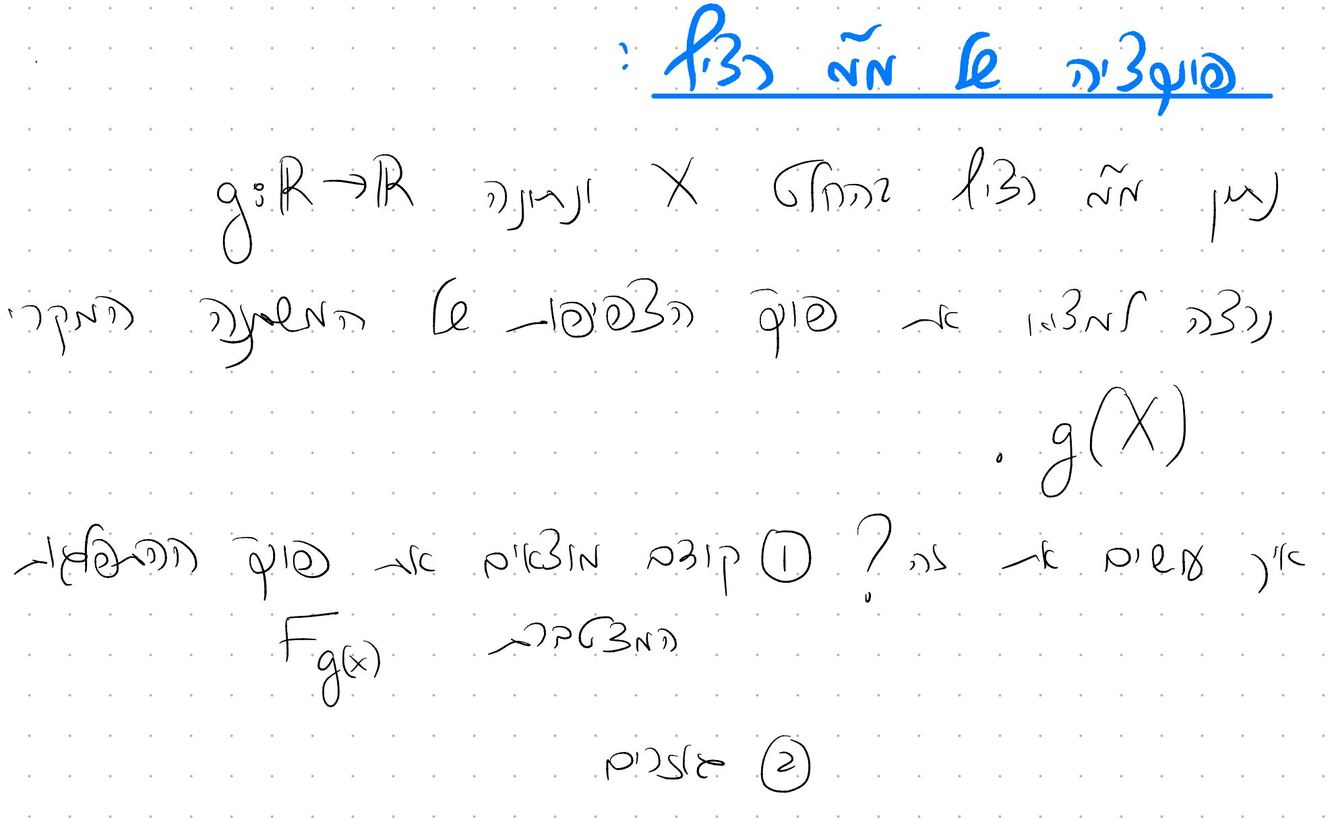 פונקציה של מ"מ רציף :
נתון מ"מ רציף בהחלט X ונתונה g:ℝ→ℝ
נרצה למצוא את פונק' הצפיפות של המשתנה המקרי
g(X) .
איך עושים את זה? ① קודם מוצאים את פונק' ההתפלגות
המצטברת F_{g(X)}
② גוזרים